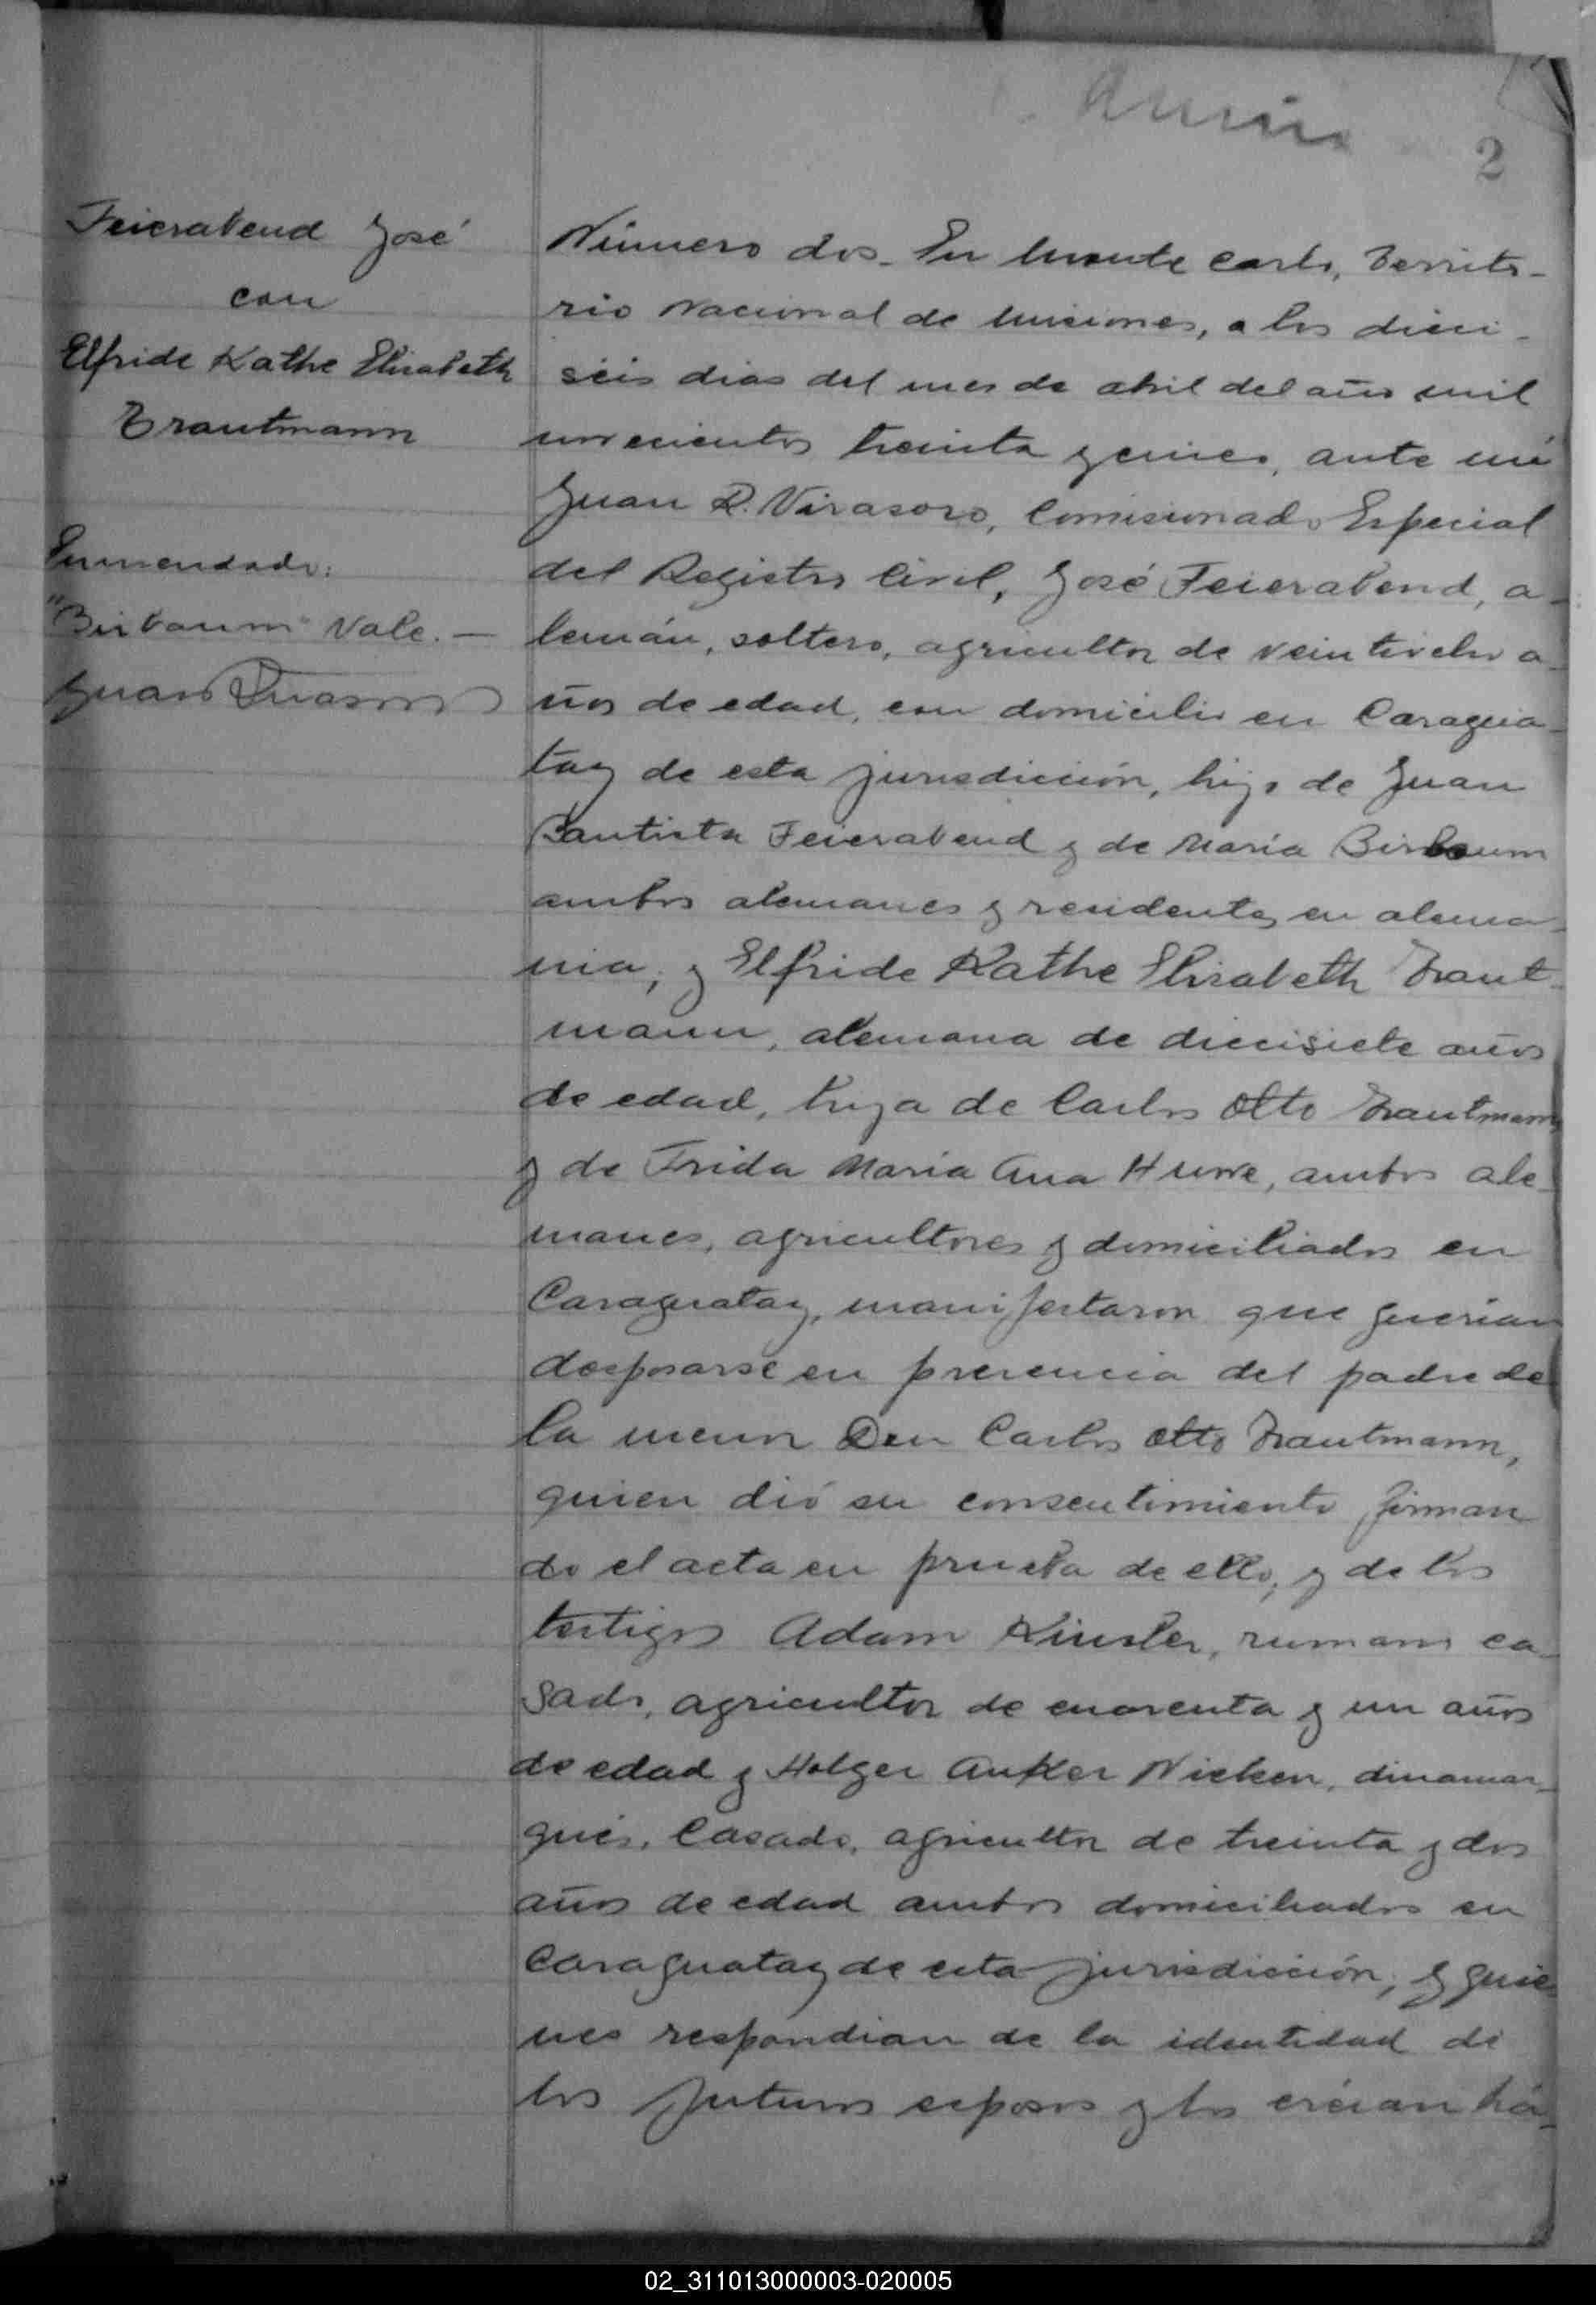 2
Feierabend José
con
Elfride Kathe Elisabeth
Trautmann
Enmendado:
"Birbaum" Vale. —
Número dos. En Monte Carlo, Territo-
rio Nacional de Misiones, a los dieci-
seis dias del mes de abril del año mil
novecientos treinta y cinco, ante mí
Juan R. Virasoro, Comisionado Especial
del Registro Civil, José Feierabend, a-
lemán, soltero, agricultor de veintiocho a-
ños de edad, con domicilio en Caragua-
tay de esta jurisdicción, hijo de Juan
Bautista Feierabend y de María Birbaum
ambos alemanes y residentes en alema-
nia; y Elfride Kathe Elisabeth Traut-
mann, alemana de diecisiete años
de edad, hija de Carlos Otto Trautmann
y de Frida María Ana, ambos ale-
manes, agricultores y domiciliados en
Caraguatay, manifestaron que querian
desposarse en presencia del padre de
la menor Don Carlos Otto Trautmann,
quien dió su consentimiento firman
do el acta en prueba de ello, y de los
testigos Adam, rumano ca-
sado, agricultor de cuarenta y un años
de edad y Holger Anker, dinamar-
qués, casado, agricultor de treinta y dos
años de edad ambos domiciliados en
Caraguatay de esta jurisdicción, y quie
nes respondian de la identidad de
los futuros esposos y los creían há-
02_311013000003-020005